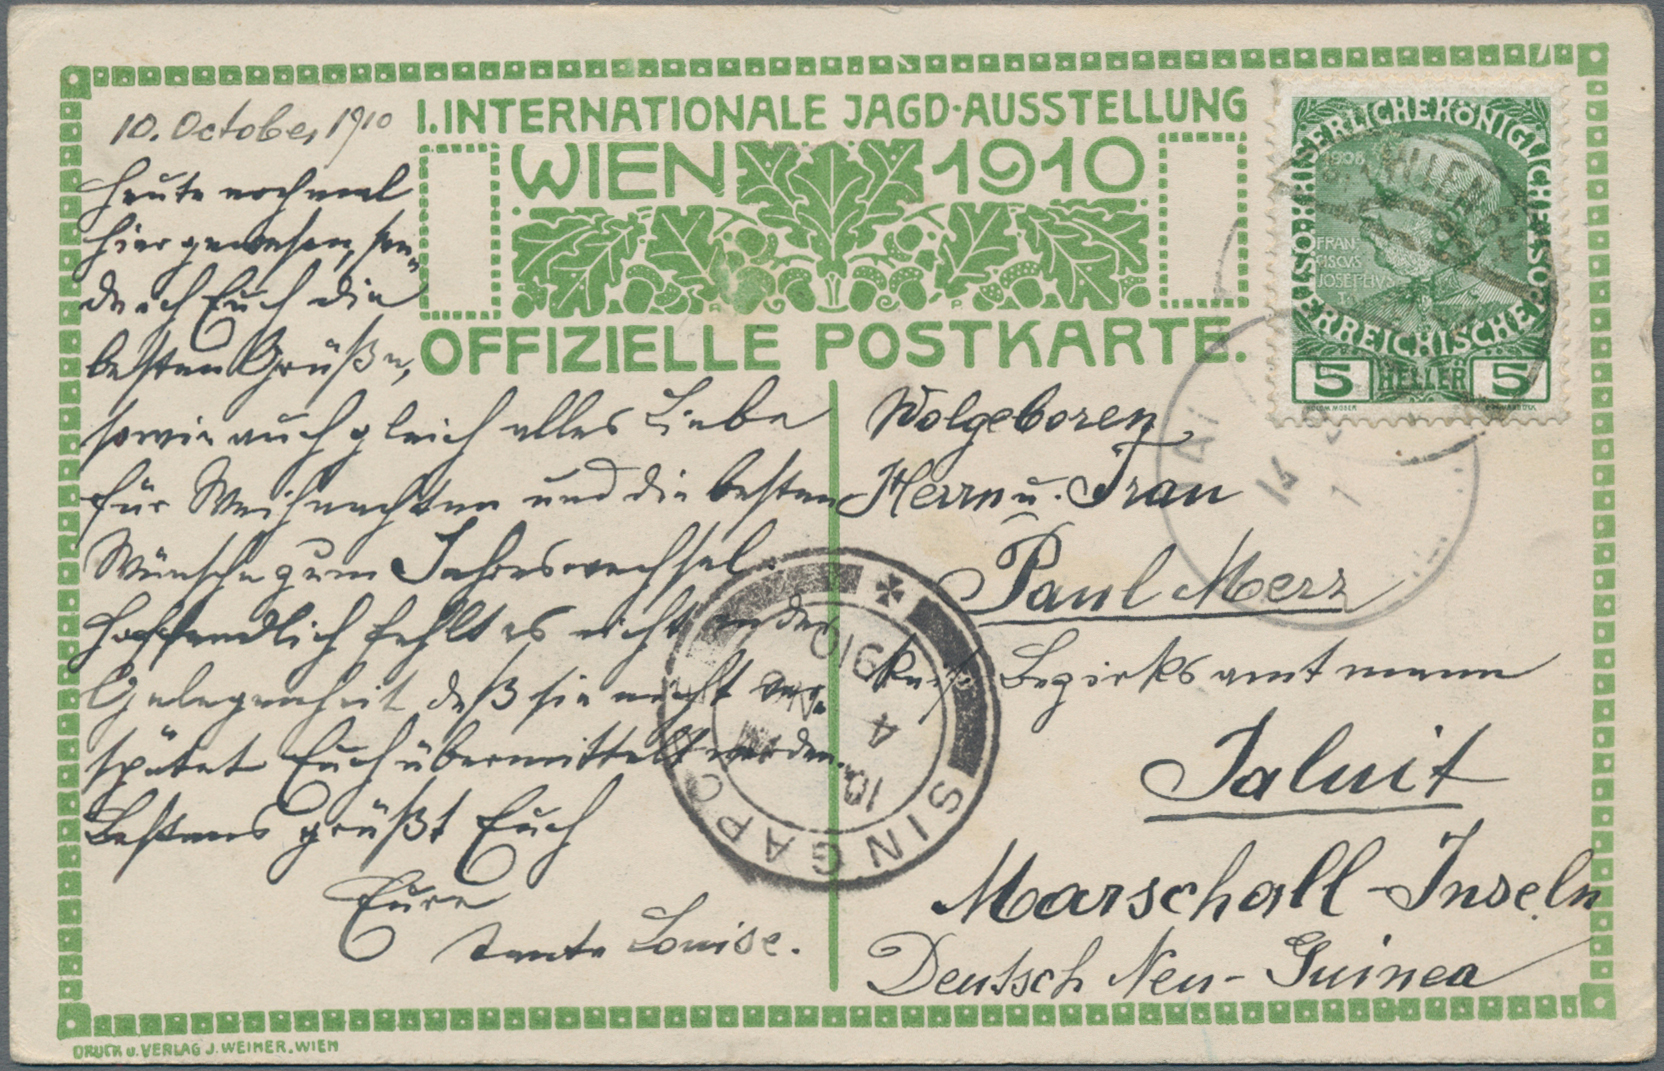 I. INTERNATIONALE JAGD-AUSSTELLUNG
WIEN 1910
OFFIZIELLE POSTKARTE.
10. October 1910
Heute nochmal
hier gewesen, sen-
de ich Euch die
besten Grüße,
sowie auch gleich alles Liebe
für Weihnachten und die besten
Wünsche zum Jahreswechsel.
Hoffendlich fehlt es nicht an der
Gelegenheit daß sie nicht ver-
spätet Euch übermittelt werden.
Bestens grüßt Euch
Eure
Tante Louise.
Wolgeboren
Herrn u. Frau
Paul Merz
Kais. Bezirksamtmann
Jaluit
Marschall-Inseln
Deutsch Neu-Guinea
KAISERLICHE KÖNIGLICHE ÖSTERREICHISCHE POST
1908
FRAN-
CISCVS
JOSEPHVS
I.
5 HELLER 5
SINGAPO
10
4
NO
1910
DRUCK u. VERLAG J. WEINER, WIEN